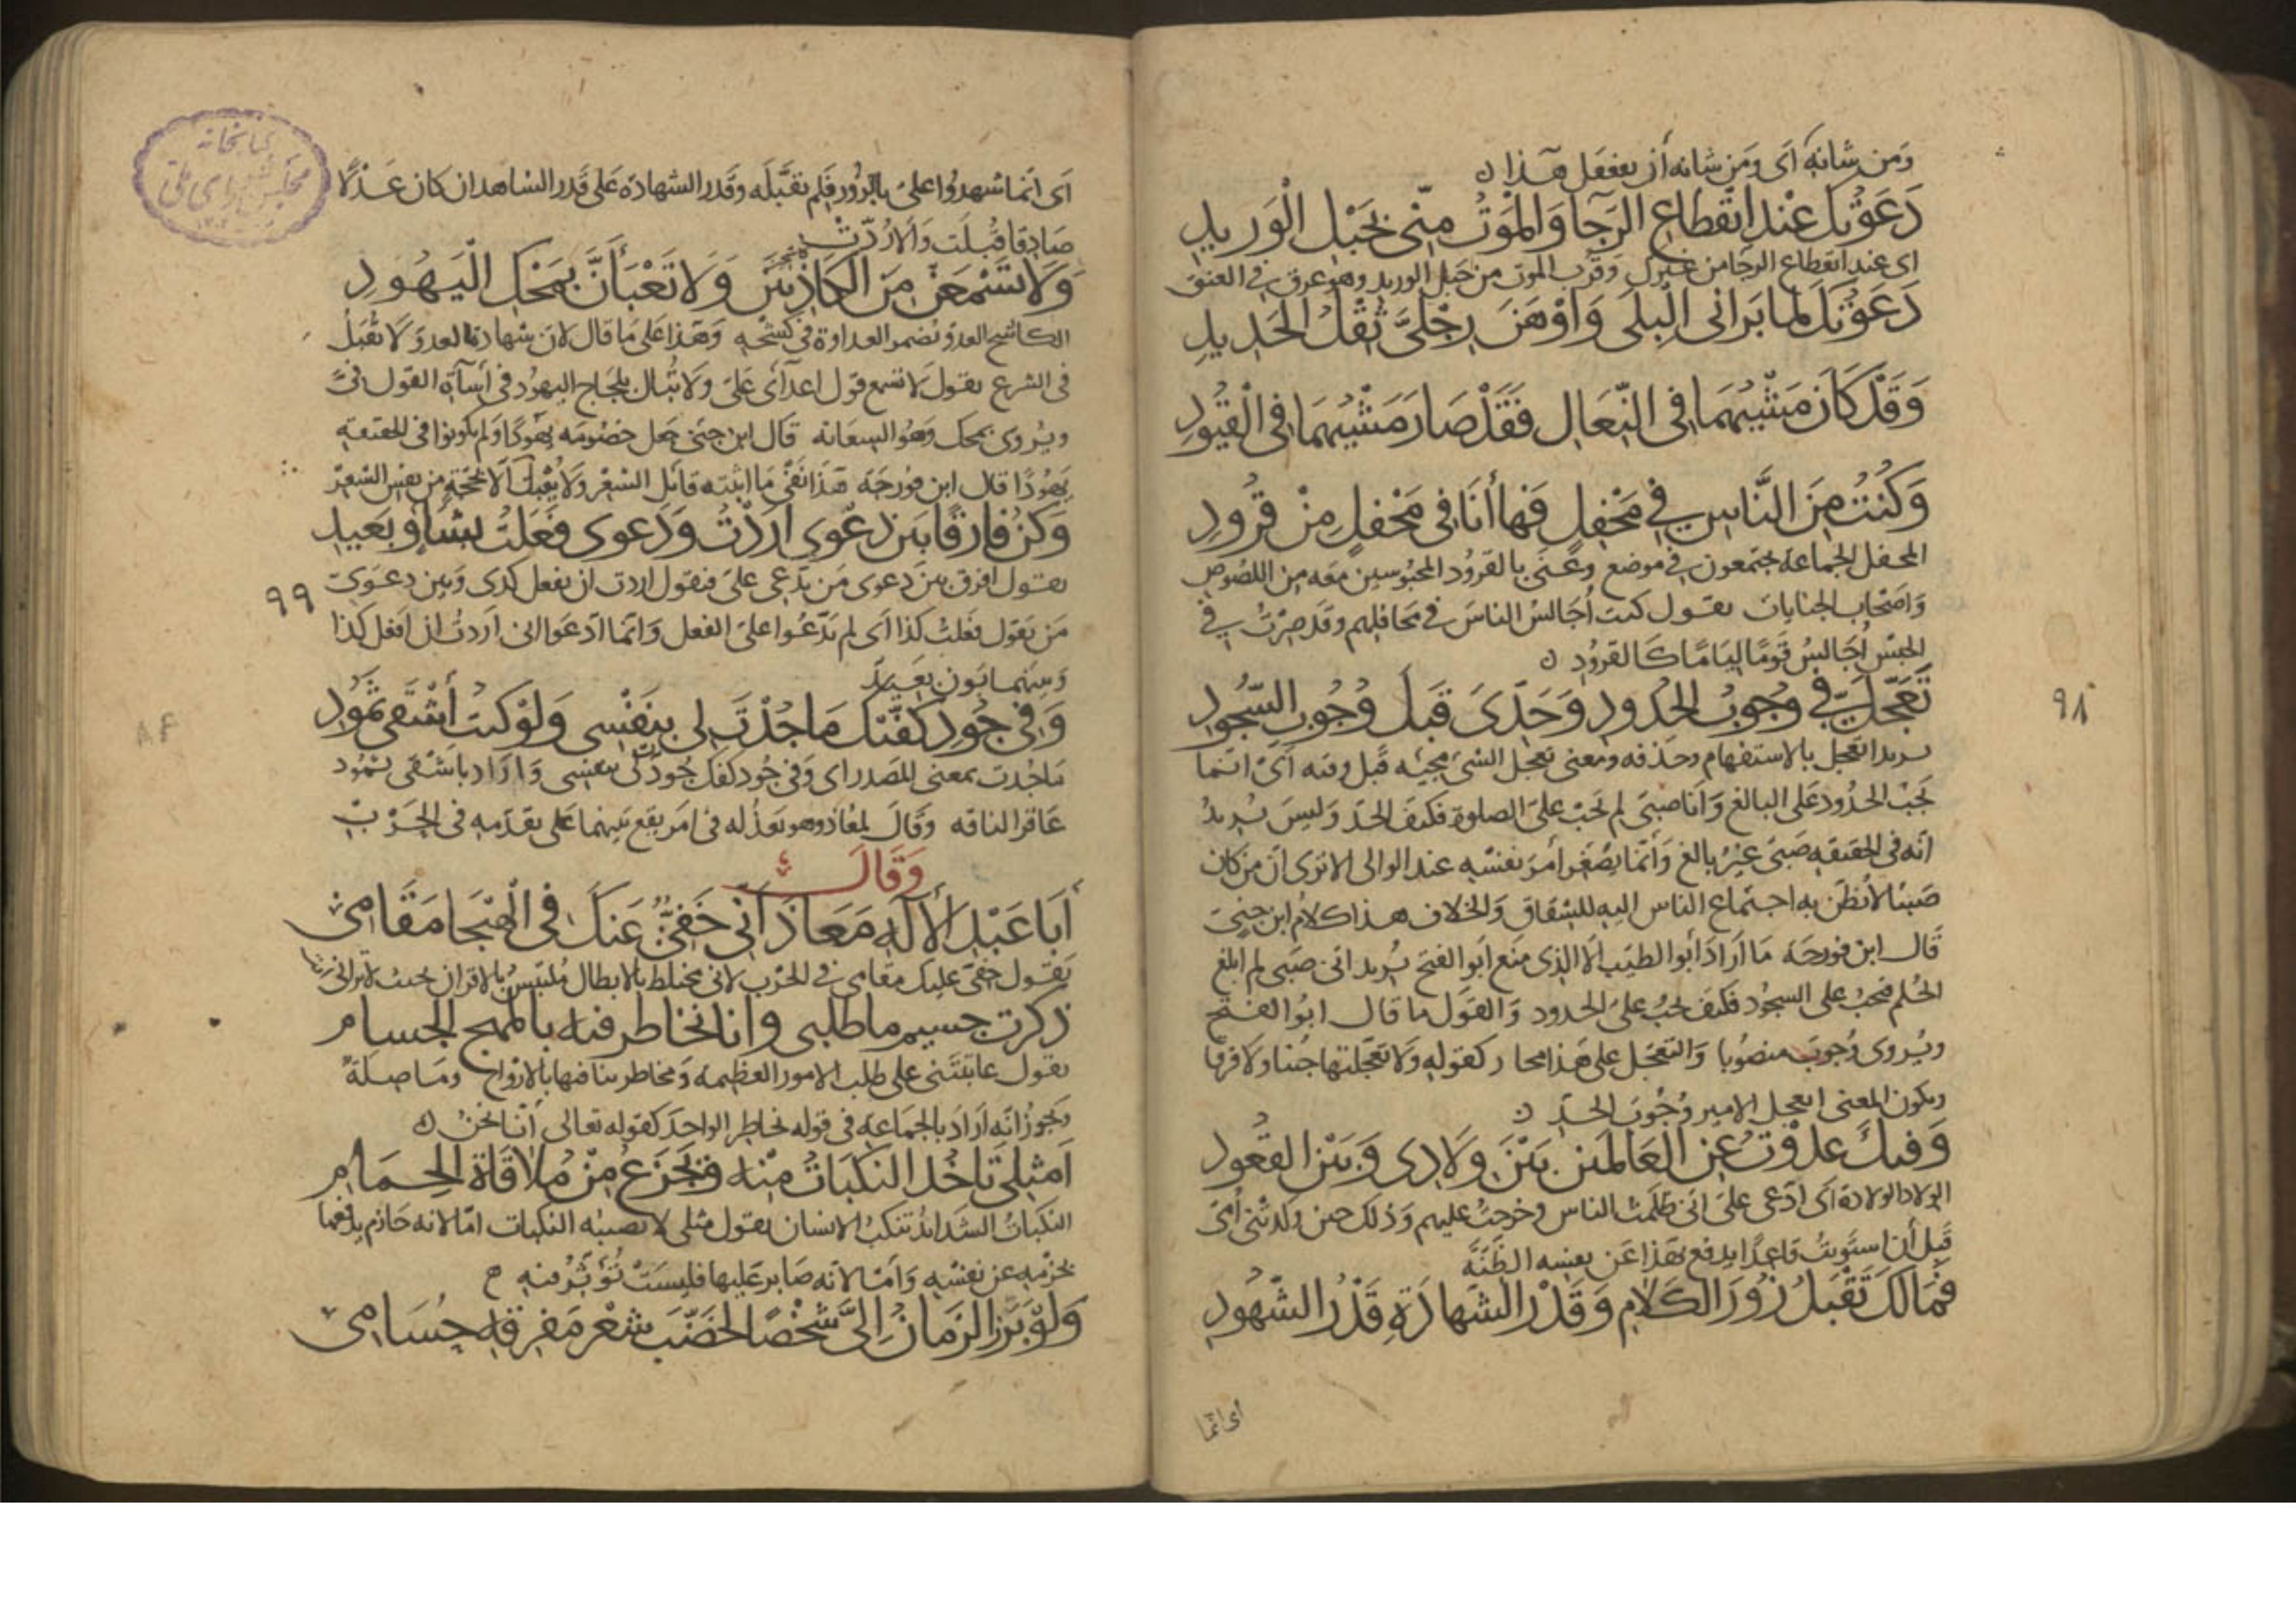 وَمن شانه أى وَمن شانه أن يفعل هذا ن
دَعَوْتُكَ عِنْدَ انْقِطَاعِ الرَجَا وَالمَوْتُ مِنّى كَحَبْلِ الْوَرِيدِ
اى عند انقطاع الرجا من غيرك وقرب الموت من حبل الوريد وهو عرق فى العنق
دَعَوْتُكَ لَمّا بَرَانى الْبِلَى وَاوْهَنَ رِجْلَىَّ ثِقْلُ الحَدِيدِ
وَقَدْ كَانَ مَشْيُهُمَا فى النِّعَالِ فَقَدْ صَارَ مَشْيُهُمَا فى الْقيُودِ
وَكُنْتُ مِنَ النَّاسِ فى مَحْفِلٍ فَها أَنَا فى مَحْفِلٍ مِنْ قرُودِ
المحفل الجماعة يجتمعون فى موضع وعَنَى بالقرود المحبوسين معه من اللصوص
وَاصْحاب الجنايات يقول كنت أُجَالسُ الناسَ فى محافلهم وقد صِرْتُ فى
الحبس أجالسُ قَومًا ليامًا كالقرود ن
تُعَجِّلُ فىَّ وُجُوبَ الحدُودِ وَحَدّىَ قَبلَ وُجُوبِ السُّجُودِ
يريد اتعجل بالاستفهام وحذفه ومعنى تعجل الشى مجيئه قبل وقته أى انما
تجب الحدود على البالغ وَانا صبىّ لم تجب علىّ الصلوة فكيف الحدّ وَليس يُريدُ
انّه فى الحقيقه صَبىّ غيرُ بالغ وَانّما يصَغّر أمرَ نفسْه عند الوالى الا ترى انّ من كان
صَبيّا لا يُظنّ به اجتماع الناس اليه للشقاق والخلاف هذا كلام ابن جنىّ
قَال ابن فورجة مَا أرَادَ أبو الطيّب الّا الذى منَع أبو الفتح يُريد انى صَبى لم ابلغ
الحُلم فيجبُ على السجُود فكيف تجبُ علىّ الحدود وَالقول ما قال ابو الفتح
ويُروى وُجوبَ منصُوبا وَالتعجّل على هذا مجار كقوله وَلا تعَجّلتها جبنا ولا فرقا
ويكون المعنى ايعجل الامير وُجُوبَ الحدّ ن
وَقيلَ عَدوْتَ عَنِ العَالَمينَ بَيْنَ ولَادِى وَبَيْنَ القعُودِ
الولاد الولادة أى ادّعى علىّ انى ظلمت الناس وخرجتُ عليهم وَذلك حين ولدتنى أُمّى
قبل أن استويتُ قاعدًا يدفع بهَذا عَن نفسه الظنّه
فَمَالَكَ تَقْبَلُ زُورَ الكَلَامِ وَقَدْرُ الشَهَادَةِ قَدْرُ الشّهُودِ
أى انّما
٩٨
أى انّما شهدُوا علىّ بالزُور فلم تقبَله وقَدر الشهادة على قَدر الشاهد ان كان عَدْلًا
صَادِقا قُبلَت وَالا رُدّتْ
وَلَا تَسْمَعَنْ مِنَ الكَاذِبينَ وَلا تَعْبَأَنَّ بِمَحْكِ الْيَهُودِ
الكاشح العدوّ يُضمر العداوة فى كشْحِه وَهَذا على مَا قال لانّ شهادة العدوّ لَا تُقبَلُ
فى الشرع يقول لا تسمع قول اعدآى علىّ وَلَا تُبال بلجاج اليهود فى أسآة القول فىّ
ويُروى بمحل وَهُو السِعَايه قَال ابن جنى جعل خصُومَه يهُودًا وَلم يكونوا فى الحقيقه
يَهُودًا قال ابن فورجَة هَذا نفى ما اثبته قائل الشعْر ولا يُقبَل الّا بحُجّةٍ من نفس الشعْر
وَكُنْ فارِقًا بَيْنَ دَعْوَى أرَدْتَ وَدَعوى فَعَلتُ بشَاوٍ بَعيدِ
يقول افرق بين دَعوى مَن يدّعى علىّ فيقول اردت ان يفعل كذى وَبين دعوَى
مَن يقول فعَلتُ كذا أى لم يَدّعُوا علىّ الفعل وَانّما ادّعَوا انى أردتُ ان افعل كذا
وَبينهما بَون بعيدٌ
٩٩
وَفى جُودِ كَفّيْكَ مَا جُدْتَ لى بِنَفْسى وَلَوْ كنتُ أشْقَى ثمُودِ
مَا جُدت بمعنى المصدر اى وَفى جُود كفك جُودك لى بنفسى وَارَاد باشقى ثمُود
عَاقر الناقه وقَالَ لمعاذ وهو يعَذُله فى امرَ يقع بَينهما على تقَدّمه فى الحَرْبِ
وَقَالَ
أَبَا عَبْدِ الأِلَهِ مَعَاذَ أنّى خَفىٌّ عَنكَ فى الْهَيْجَا مَقَامى
يَقول خفىّ عليك مقامى فى الحَرْب لانى مختلط بالابطال مُلتبس بالاقران حيث لا ترانى
ذكرت جسيم ما طلبى وانا نخاطر فيه بالمهج الجسام
يقول عابَتَنى على طلب الامور العظيمة وَمخاطرتنا فيها بالارْوَاح وَمَا صِلَةٌ
وَيجوزُ انّه أرَادَ بالجماعة فى قوله نخاطر الواحدَ كقوله تعالى أنّا نحنُ ن
اَمِثْلى تَاخُذ النكَبَاتُ مِنْه وَيَجْزَعُ مِنْ مُلَاقَاة الحِمَامِ
النكبَاتُ الشدائد تنكبُ الانسان يقول مثلى لا تصيبُه النكبات امّا لانه حَازم يدفعها
بحَزمِه عن نفسْه وَامّا لانّه صَابر عَليها فليسَتْ تُؤثِّرُ فيه
وَلَوْ بَرَزَ الزَمَانُ إِلَىَّ شَخْصًا لخَضّبَ شعْرَ مَفرِقِهِ حُسَامِى
كتابخانه مجلس شوراى ملى